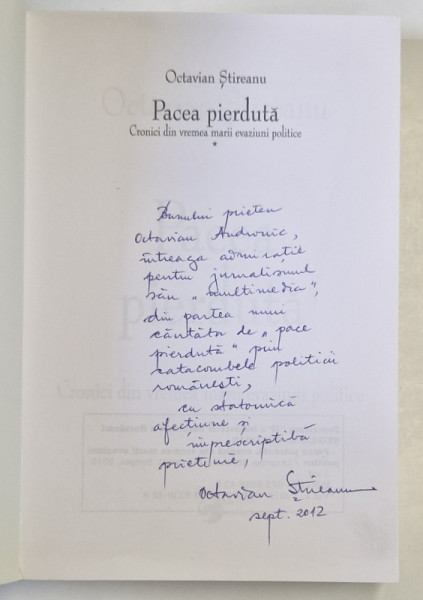 Octavian Știreanu
Pacea pierdută
Cronici din vremea marii evaziuni politice
*
Bunului prieten
Octavian Andronic,
întreaga admirație
pentru jurnalismul
său „multimedia",
din partea unui
căutător de „pace
pierdută" prin
catacombele politicii
românești,
cu statornică
afecțiune și
imprescriptibilă
prietenie,
Octavian Știreanu
sept. 2012